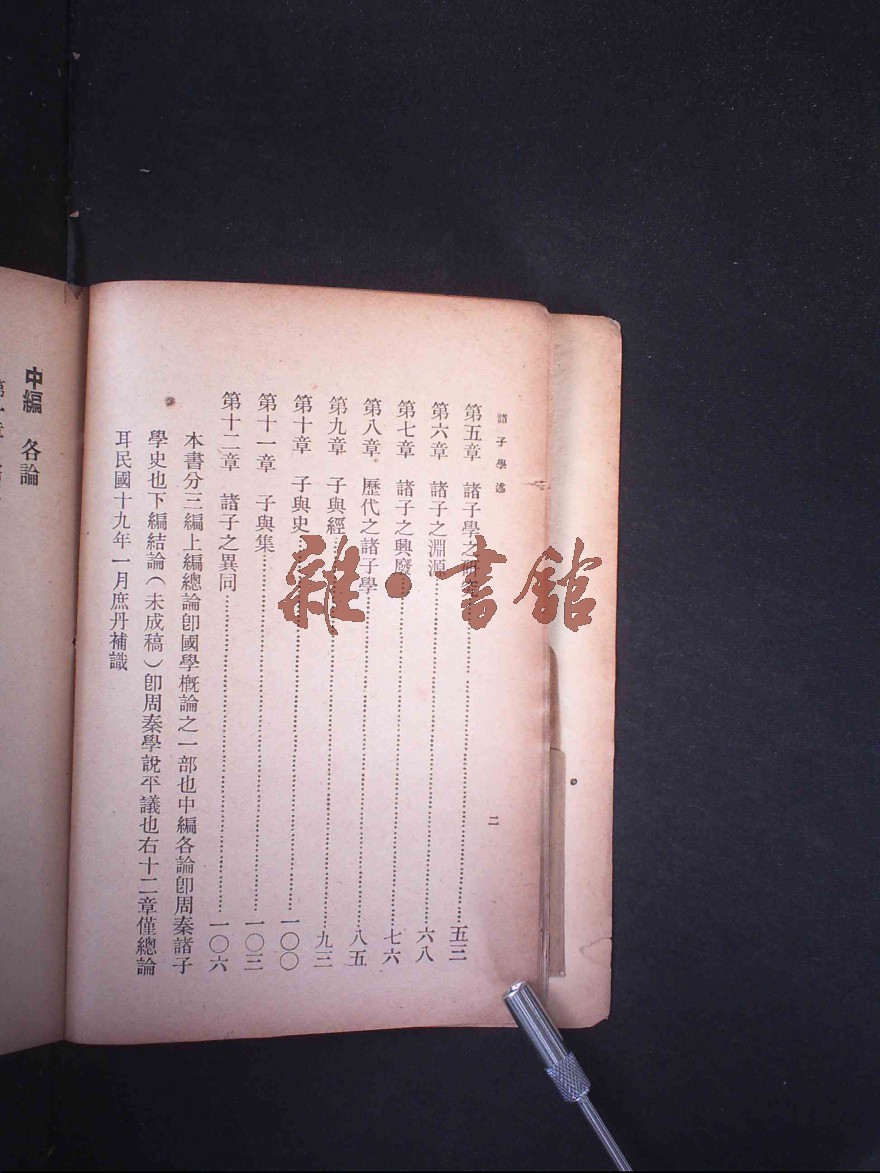 諸子學述
二
第五章 諸子學之
第六章 諸子之淵源……六八
第七章 諸子之興廢……七六
第八章 歷代之諸子學……八五
第九章 子與經……九三
第十章 子與史……一〇〇
第十一章 子與集……一〇三
第十二章 諸子之異同……一〇六
本書分三編上編總論卽國學概論之一部也中編各論卽周秦諸子
學史也下編結論(未成稿)卽周秦學說平議也右十二章僅總論
耳民國十九年一月庶丹補識
中編 各論
雜·書館